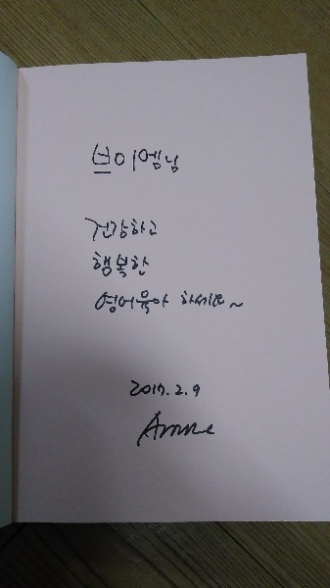 브이엠님
건강하고
행복한
영어육아 하세요~
2017.2.9
Anne